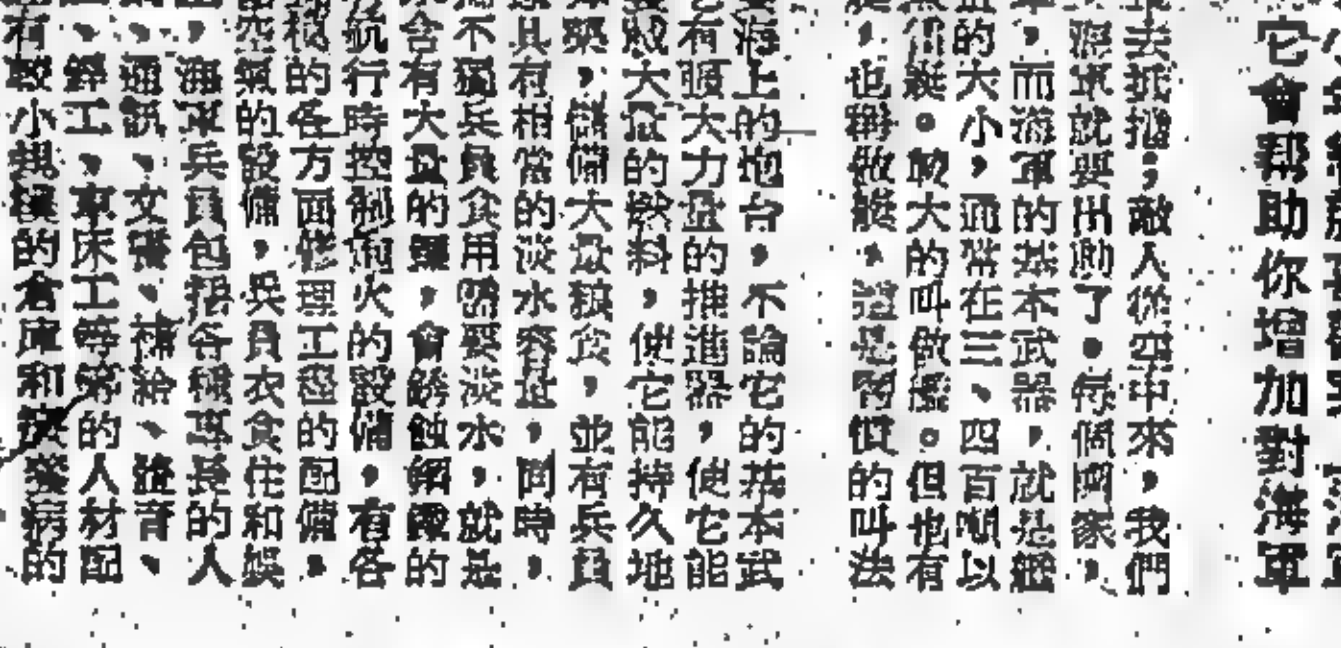 它會幫助你增加對海軍
去抵擋；敵人從空中來，我們
海軍就要出動了。每個國家，
，而海軍的基本武器，就是艦
的大小，通常在三、四百噸以
艇。較大的叫做艦。但也有
，也稱做艇，這是習慣的叫法
海上的炮台，不論它的基本武
有頓大力量的推進器，使它能
大量的燃料，使它能持久地
，儲備大量糧食，並有兵員
具有相當的淡水容量，同時，
不獨兵員食用需要淡水，就是
含有大量的鹽，會銹蝕鋼鐵的
航行時控制炮火的設備，有各
種的各方面修理工程的配備，
空氣的設備，兵員衣食住和娛
，海軍兵員包括各種專長的人
、通訊、文書、補給、聲音、
、鋒工、車床工等等的人材配
有較小規模的倉庫和
病的